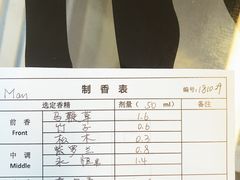 Man
制 香 表
编号:18104
选定香精 剂量 ( 50 ml) 备注
前香 马鞭草 1.6
Front 竹子 0.6
松木 0.3
中调 紫罗兰 0.8
Middle 1.4